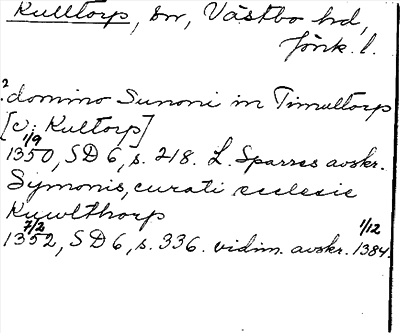 Kulltorp, sn, Västbo hd,
Jönk. l.
? domino Sunoni in Timultorp
[o: Kultorp]
1/9
1350, SD 6, s. 218. L. Sparres avskr.
Symonis, curati ecclesie
Kuwlthorp
7/2 1/12
1352, SD 6, s. 336. vidim. avskr. 1384.